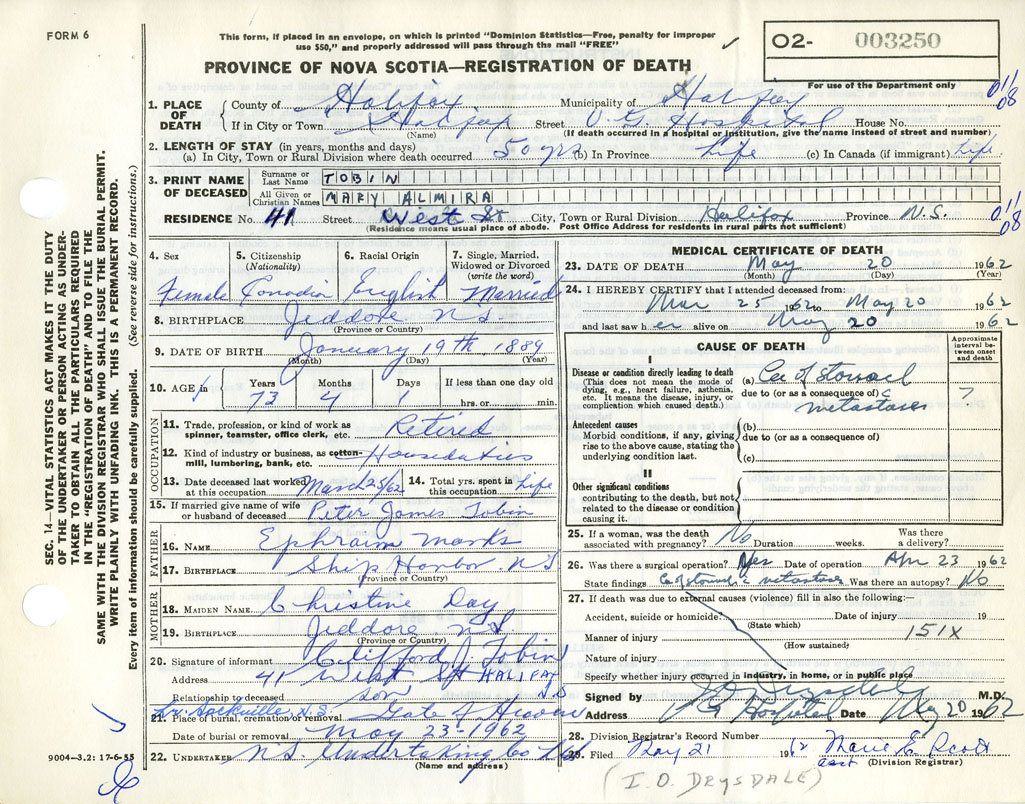 FORM 6
This form, if placed in an envelope, on which is printed "Dominion Statistics—Free, penalty for improper
use $50," and properly addressed will pass through the mail "FREE"
O2- 003250
For use of the Department only
PROVINCE OF NOVA SCOTIA—REGISTRATION OF DEATH
1. PLACE OF DEATH County of Halifax Municipality of Halifax
If in City or Town Halifax Street V.G. Hospital House No.
(Name) (If death occurred in a hospital or institution, give the name instead of street and number)
011
08
2. LENGTH OF STAY (in years, months and days)
(a) In City, Town or Rural Division where death occurred 50 yrs (b) In Province Life (c) In Canada (if immigrant) Life
3. PRINT NAME OF DECEASED Surname or Last Name TOBIN
All Given or Christian Names MARY ALMIRA
RESIDENCE No. 41 Street West St City, Town or Rural Division Halifax Province N.S.
(Residence means usual place of abode. Post Office Address for residents in rural parts not sufficient)
011
08
SEC. 14—VITAL STATISTICS ACT MAKES IT THE DUTY
OF THE UNDERTAKER OR PERSON ACTING AS UNDER-
TAKER TO OBTAIN ALL THE PARTICULARS REQUIRED
IN THE "REGISTRATION OF DEATH" AND TO FILE THE
SAME WITH THE DIVISION REGISTRAR WHO SHALL ISSUE THE BURIAL PERMIT.
WRITE PLAINLY WITH UNFADING INK. THIS IS A PERMANENT RECORD.
Every item of information should be carefully supplied. (See reverse side for instructions.)
4. Sex 5. Citizenship (Nationality) 6. Racial Origin 7. Single, Married, Widowed or Divorced (write the word)
Female Canadian English Married
8. BIRTHPLACE Jeddore N.S.
(Province or Country)
9. DATE OF BIRTH January 19th 1889
(Month) (Day) (Year)
10. AGE in Years Months Days If less than one day old
73 4 1 hrs. or min.
OCCUPATION
11. Trade, profession, or kind of work as
spinner, teamster, office clerk, etc. Retired
12. Kind of industry or business, as cotton-
mill, lumbering, bank, etc. Houseduties
13. Date deceased last worked at this occupation March 25/62 14. Total yrs. spent in this occupation Life
15. If married give name of wife
or husband of deceased Peter James Tobin
FATHER
16. NAME Ephraim Marks
17. BIRTHPLACE Ship Harbor N.S
(Province or Country)
MOTHER
18. MAIDEN NAME Christine Day
19. BIRTHPLACE Jeddore N.S
(Province or Country)
20. Signature of informant Clifford J Tobin
Address 41 West St HALIFAX
N.S
Relationship to deceased son
Lr. Sackville, N.S.
21. Place of burial, cremation or removal Gate of Heaven
Date of burial or removal May 23-1962
22. UNDERTAKER N S Undertaking Co
(Name and address)
9004—3.2: 17-6-55
MEDICAL CERTIFICATE OF DEATH
23. DATE OF DEATH May 20 1962
(Month) (Day) (Year)
24. I HEREBY CERTIFY that I attended deceased from:
Mar 25 1962 to May 20 1962
and last saw her alive on May 20 1962
CAUSE OF DEATH
Approximate interval between onset and death
I
Disease or condition directly leading to death
(This does not mean the mode of dying, e.g., heart failure, asthenia, etc. It means the disease, injury, or complication which caused death.)
(a) Ca of stomach
due to (or as a consequence of) c
metastases
?
Antecedent causes
Morbid conditions, if any, giving rise to the above cause, stating the underlying condition last.
(b)
due to (or as a consequence of)
(c)
II
Other significant conditions
contributing to the death, but not related to the disease or condition causing it.
25. If a woman, was the death associated with pregnancy? No Duration weeks. Was there a delivery?
26. Was there a surgical operation? Yes Date of operation Apr 23 1962
State findings Ca of stomach c metastases Was there an autopsy? No
27. If death was due to external causes (violence) fill in also the following:—
Accident, suicide or homicide? Date of injury 19
(State which)
Manner of injury 151X
(How sustained)
Nature of injury
Specify whether injury occurred in industry, in home, or in public place
Signed by I O Drysdale M.D.
Address V G Hospital Date May 20 1962
28. Division Registrar's Record Number
29. Filed May 21 1962 Marie E. Scott
asst (Division Registrar)
(I. O. DRYSDALE)